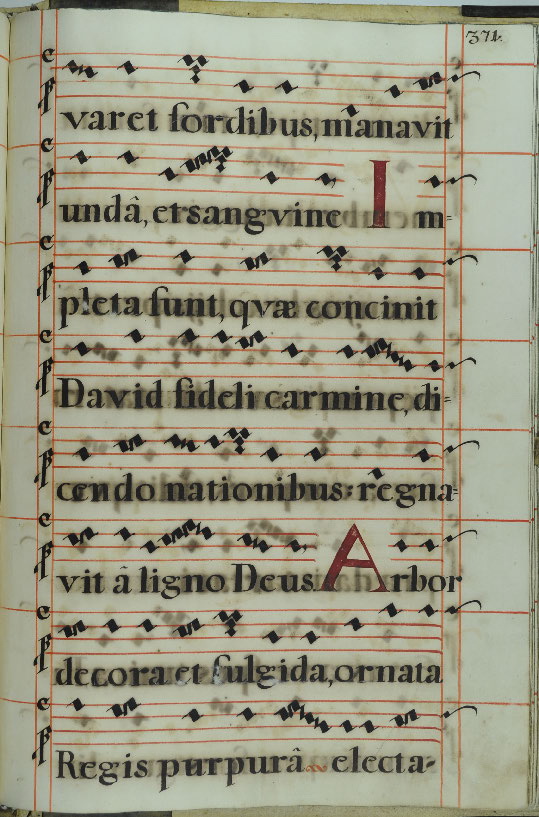 371.
varet sordibus, manavit
undâ, et sangvine Im-
pleta sunt, quæ concinit
David fideli carmine, di-
cendo nationibus: regna-
vit â ligno Deus Arbor
decora et fulgida, ornata
Regis purpurâ electa-